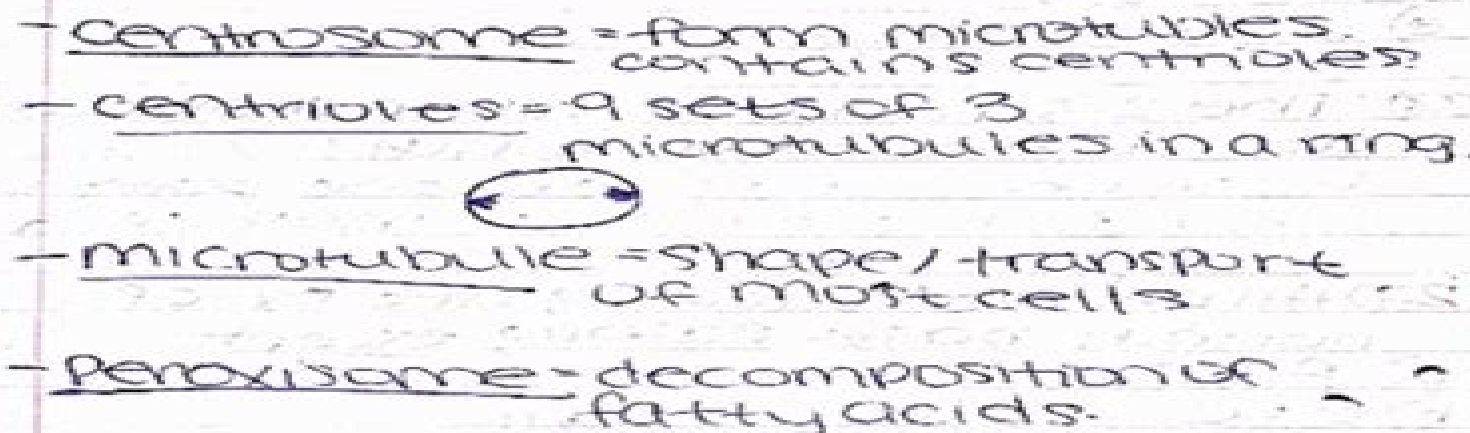 - Centrosome = form microtubles.
contains centrioles
- centrioles = 9 sets of 3
microtubules in a ring.
- microtubule = shape/transport
of most cells
- Peroxisome = decomposition of
fatty acids.